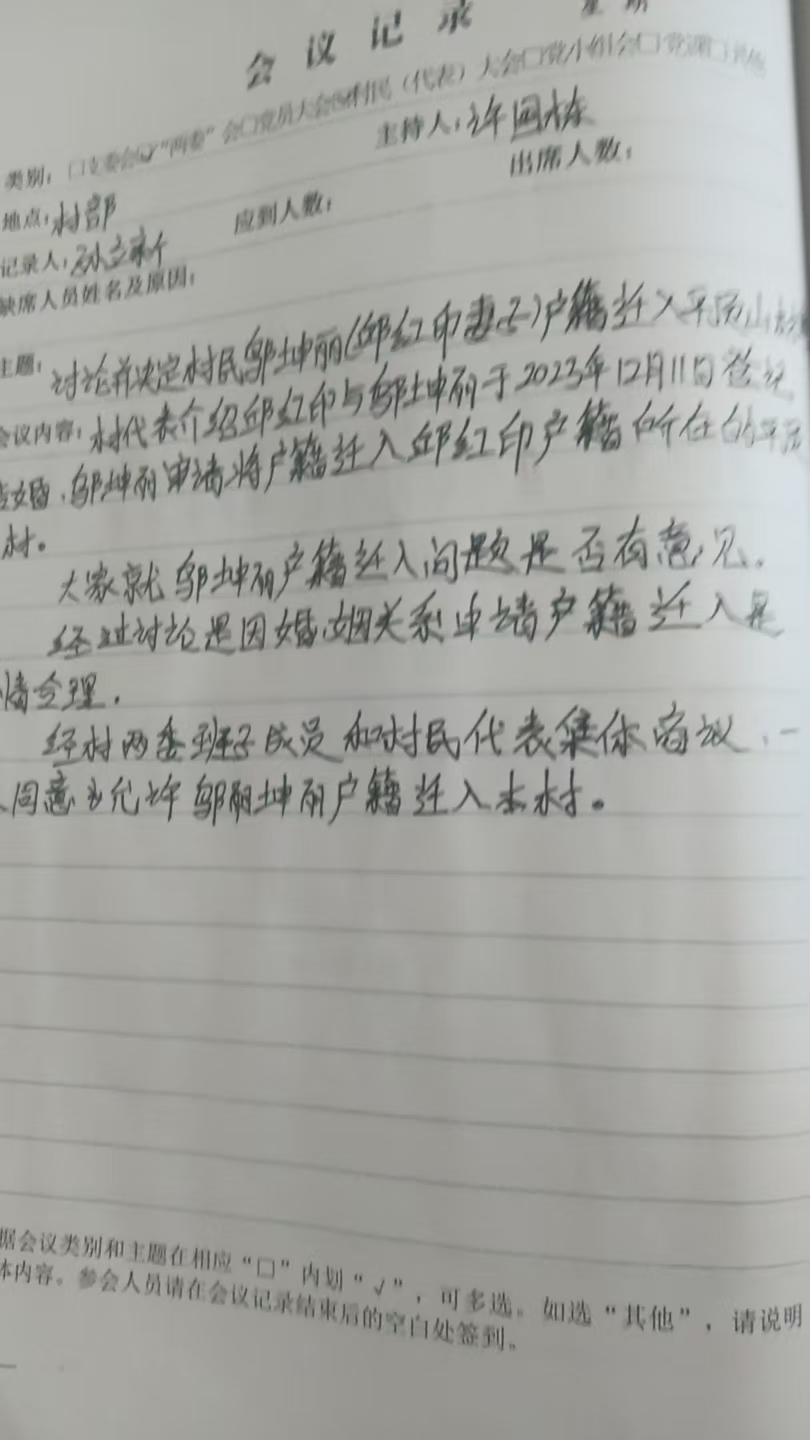 会议记录
类别：□支委会☑“两委”会□党员大会☑村民（代表）大会□党小组会□党课□其他
主持人：许国栋
地点：村部 应到人数： 出席人数：
记录人：孙立新
缺席人员姓名及原因：
主题：讨论并决定村民邬坤丽（邱红印妻子）户籍迁入平房山村
会议内容：村代表介绍邱红印与邬坤丽于2023年12月11日登记
结婚，邬坤丽申请将户籍迁入邱红印户籍所在的平房
村。
大家就邬坤丽户籍迁入问题是否有意见。
经过讨论是因婚姻关系申请户籍迁入是
情合理。
经村两委班子成员和村民代表集体商议，一
同意允许邬丽坤丽户籍迁入本村。
据会议类别和主题在相应“□”内划“√”，可多选。如选“其他”，请说明
体内容。参会人员请在会议记录结束后的空白处签到。